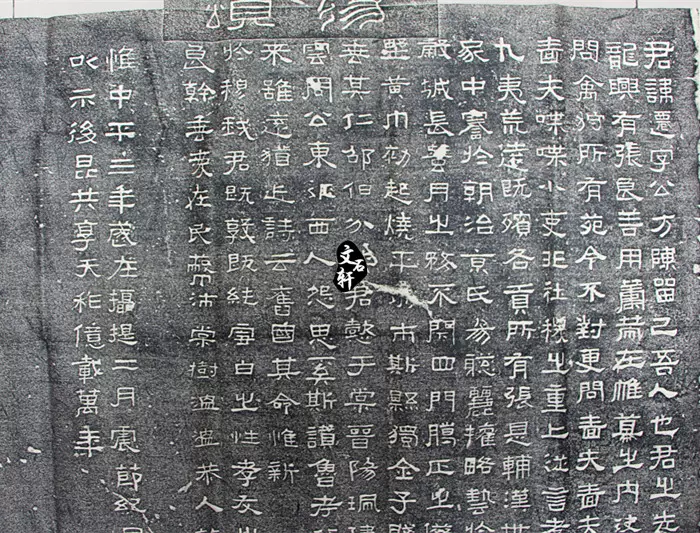 蕩
頌
君諱遷字公方陳留己吾人也君之先
龍興有張良善用籌策在帷幕之內決
問禽狩所有苑令不對更問嗇夫嗇夫
嗇夫喋喋小吏非社稷之重上從言孝
九夷荒遠既殯各貢所有張是輔漢世
家中謇於朝治京氏易聰麗權略藝於
穀城長蠶月之務不閉四門臘正之僚
壄黃巾初起燒平城市斯縣獨全子賤
喪其仁邵伯分君懿于棠晉陽珮瑋
雲周公東征西人怨思奚斯讚魯考
來雖遠猶近詩云舊國其命惟新
於穆我君既敦既純雪白之性孝友之
良幹垂愛在民蔽沛棠樹溫溫恭人
惟中平三年歲在攝提二月震節紀日
以示後昆共享天祚億載萬年
文石軒